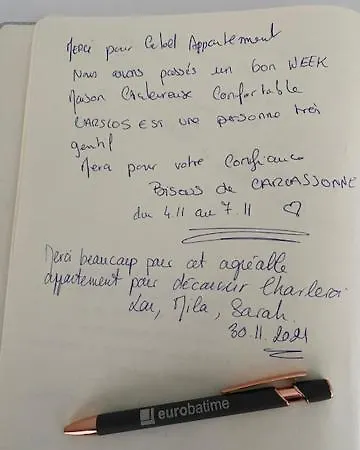 Merci pour ce bel Appartement
Nous avons passés un bon WEEK
Maison Chaleureuse Confortable
CARSLOS EST une personne très
gentil
Merci pour votre Confiance
BISOUS de CARCASSONNE
du 4.11 au 7.11 ♡
Merci beaucoup pour cet agréable
appartement pour découvrir Charleroi
Lou, Mila, Sarah.
30.11.2021
eurobatime